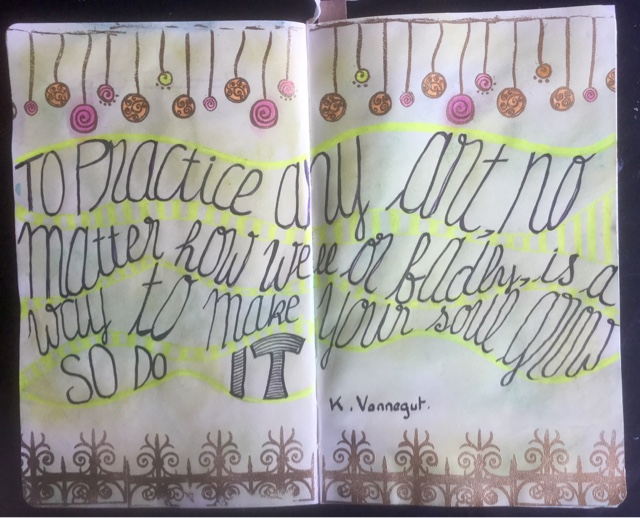 TO Practice any art, no
matter how well or badly, is a
way to make your soul grow
SO DO IT
K. Vonnegut.